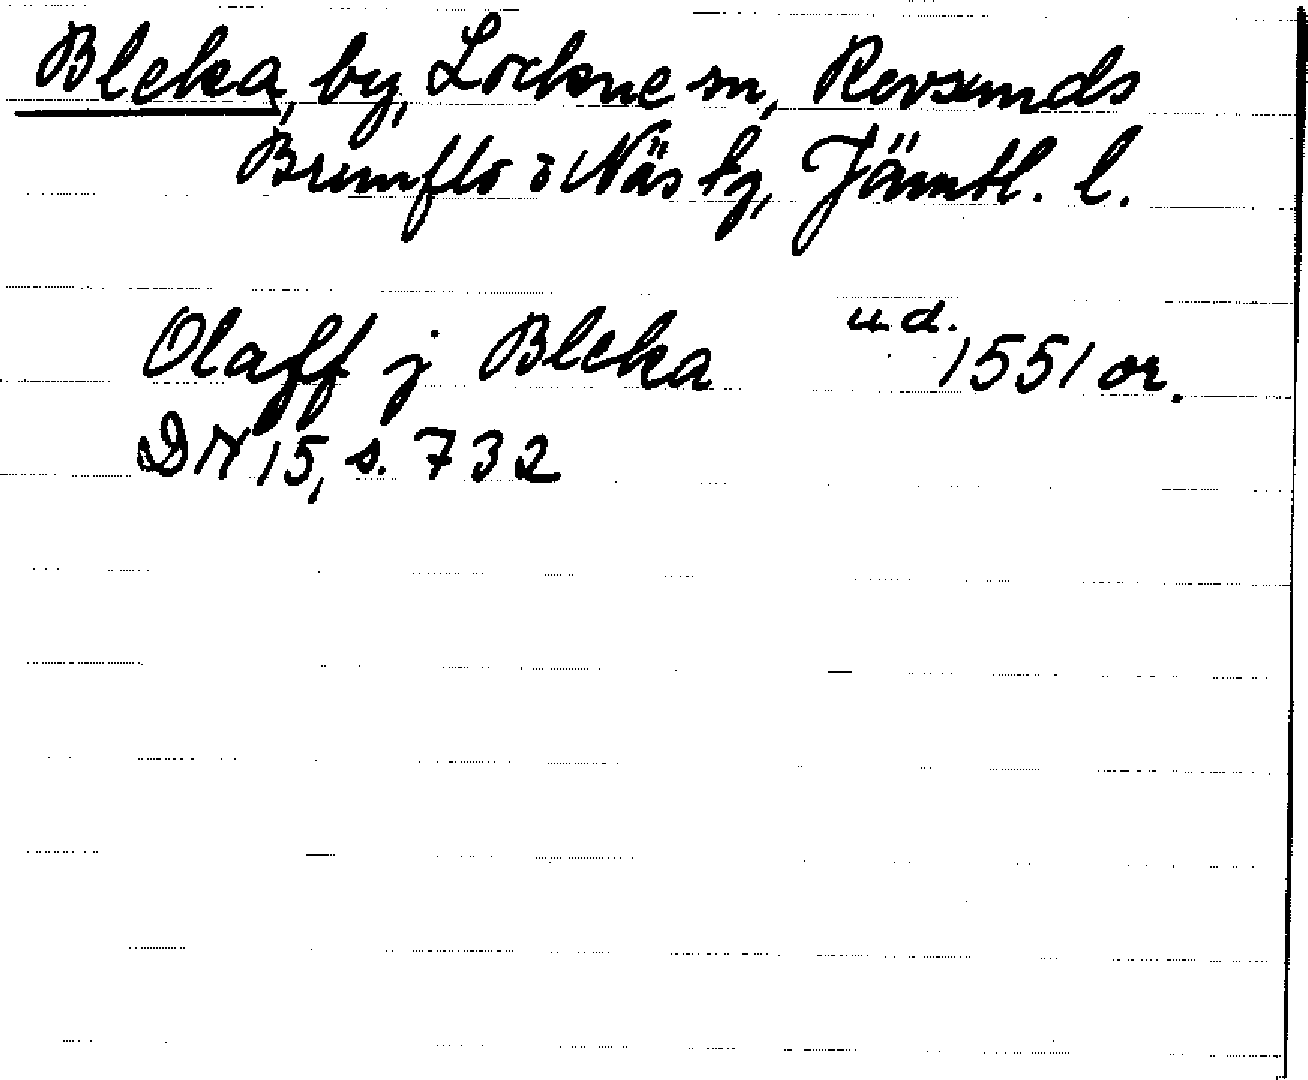 Bleka, by, Lockne sn, Revsunds
Brunflo o Näs tg, Jämtl. l.
Olaff j Bleka u.d. 1551 or.
DN 15, s. 732